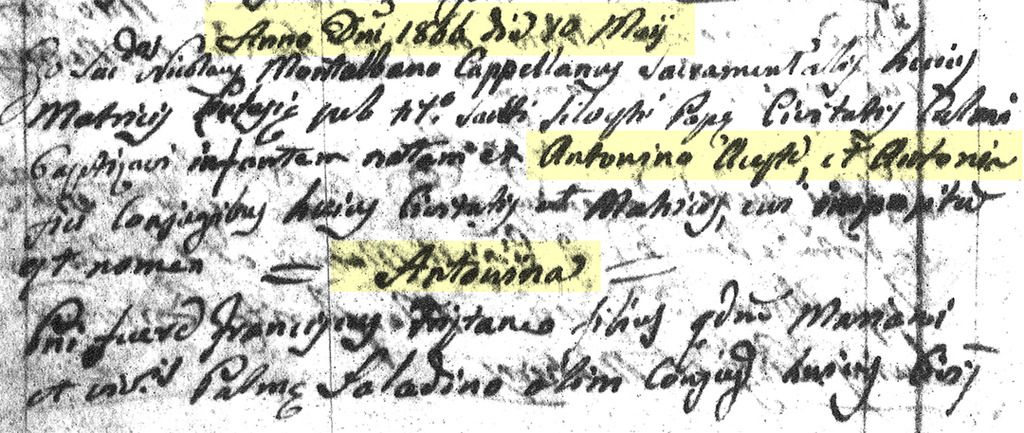 Anno Dni 1866 die 10 Maij
Ego Sac. Dns Nicolaus Montalbano Cappellanus Sacramentalis huius
Matricis Ecclesie sub tit.o Sancti Silvestri Pape Civitatis Palmi
Baptizavi infantem natam ex Antonino et Antonia
Conjugibus huius Civitatis et Matricis, cui impositu
est nomen = Antonina =
Pni fuere Franciscus filius qdm Mariani
et Palme Saladino olim Conjug huius